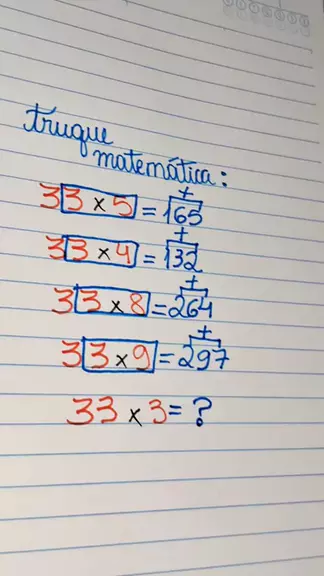 truque
matemática:
33 × 5 = 165
+
33 × 4 = 132
+
33 × 8 = 264
+
33 × 9 = 297
+
33 × 3 = ?